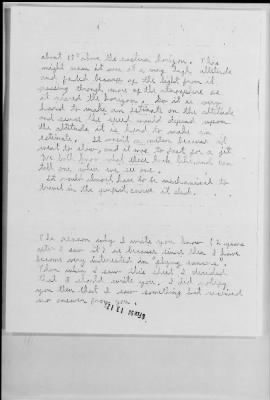 about 15° above the eastern horizon. This
might mean it was at a very high altitude
and faded because of the light from it
passing through more of the atmosphere as
it neared the horizon. So it is very
hard to make an estimate on the altitude
and since the speed would depend upon
the altitude it is hard to make an
estimate. It wasn't a meteor because it
went to slow, and it was to fast for a jet
I've both know what these look like and can
tell one when we see one.
It would almost have to be mechanized to
travel in the curve it did.
The reason why I write you know (2 years
after I saw it) is because since then I have
become very interested in "flying saucers".
Then when I saw this sheet I decided
that I should write you. I did notify
you then that I saw something but received
no answer from you.